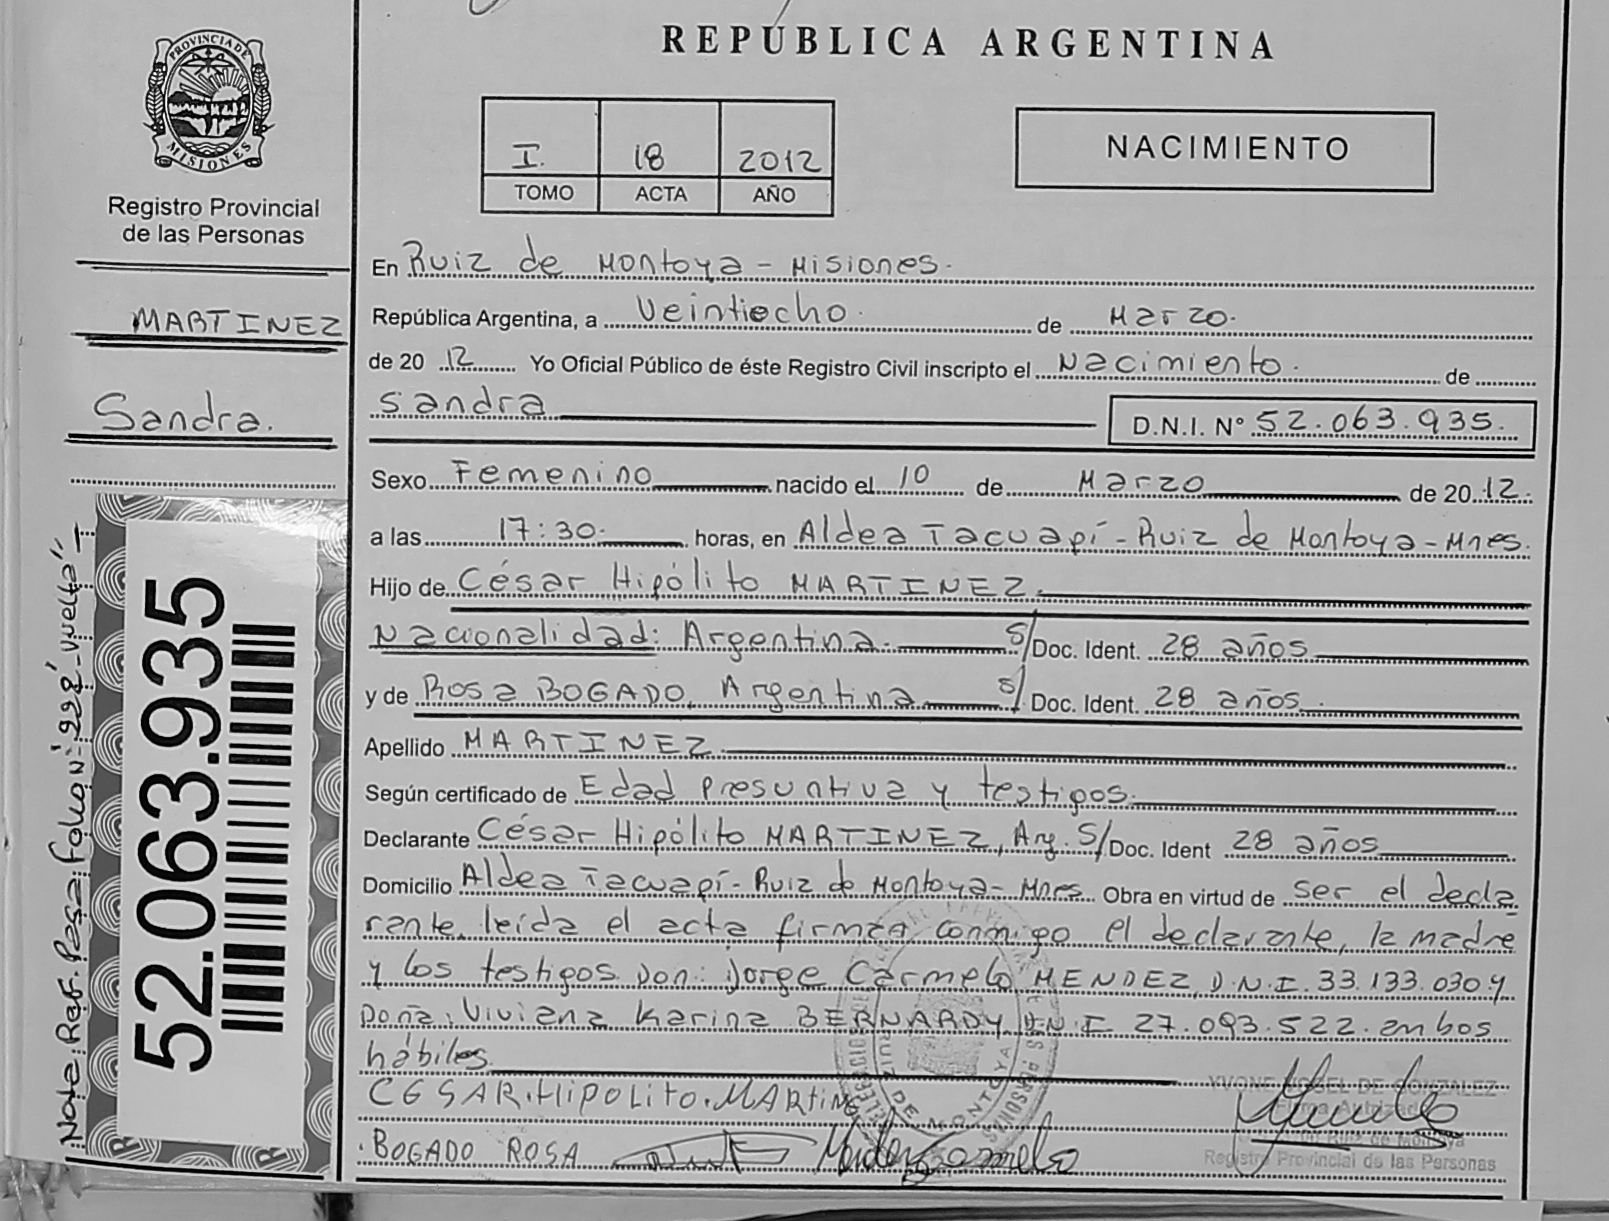 PROVINCIA DE
MISIONES
Registro Provincial
de las Personas
MARTINEZ
Sandra.
52.063.935
Nota: Ref. Pasa Folio N°
REPÚBLICA ARGENTINA
I. 18 2012
TOMO ACTA AÑO
NACIMIENTO
En Ruiz de Montoya - Misiones.
República Argentina, a Veintiocho. de Marzo.
de 20 12 Yo Oficial Público de éste Registro Civil inscripto el Nacimiento. de
Sandra D.N.I. N° 52.063.935.
Sexo Femenino nacido el 10 de Marzo de 20 12.
a las 17:30 horas, en Aldea Tacuapí - Ruiz de Montoya - Mnes.
Hijo de César Hipólito MARTINEZ.
Nacionalidad: Argentina. S/ Doc. Ident. 28 años
y de Rosa BOGADO, Argentina S/ Doc. Ident. 28 años.
Apellido MARTINEZ
Según certificado de Edad presuntiva y testigos.
Declarante César Hipólito MARTINEZ, Arg. S/ Doc. Ident 28 años
Domicilio Aldea Tacuapí - Ruiz de Montoya - Mnes. Obra en virtud de ser el decla
rante, leída el acta firman conmigo el declarante, la madre
y los testigos Don: Jorge Carmelo MENDEZ, D.N.I. 33.133.030 y
Doña: Viviana Karina BERNARDY D.N.I 27.093.522. ambos
hábiles.
CESAR.HIPOLITO.MARTINE
YVONE NOGEL DE GONZALEZ
Firma Autorizada
Ruiz de Montoya
Registro Provincial de las Personas
BOGADO ROSA Mendez Carmelo
RUIZ DE MONTOYA